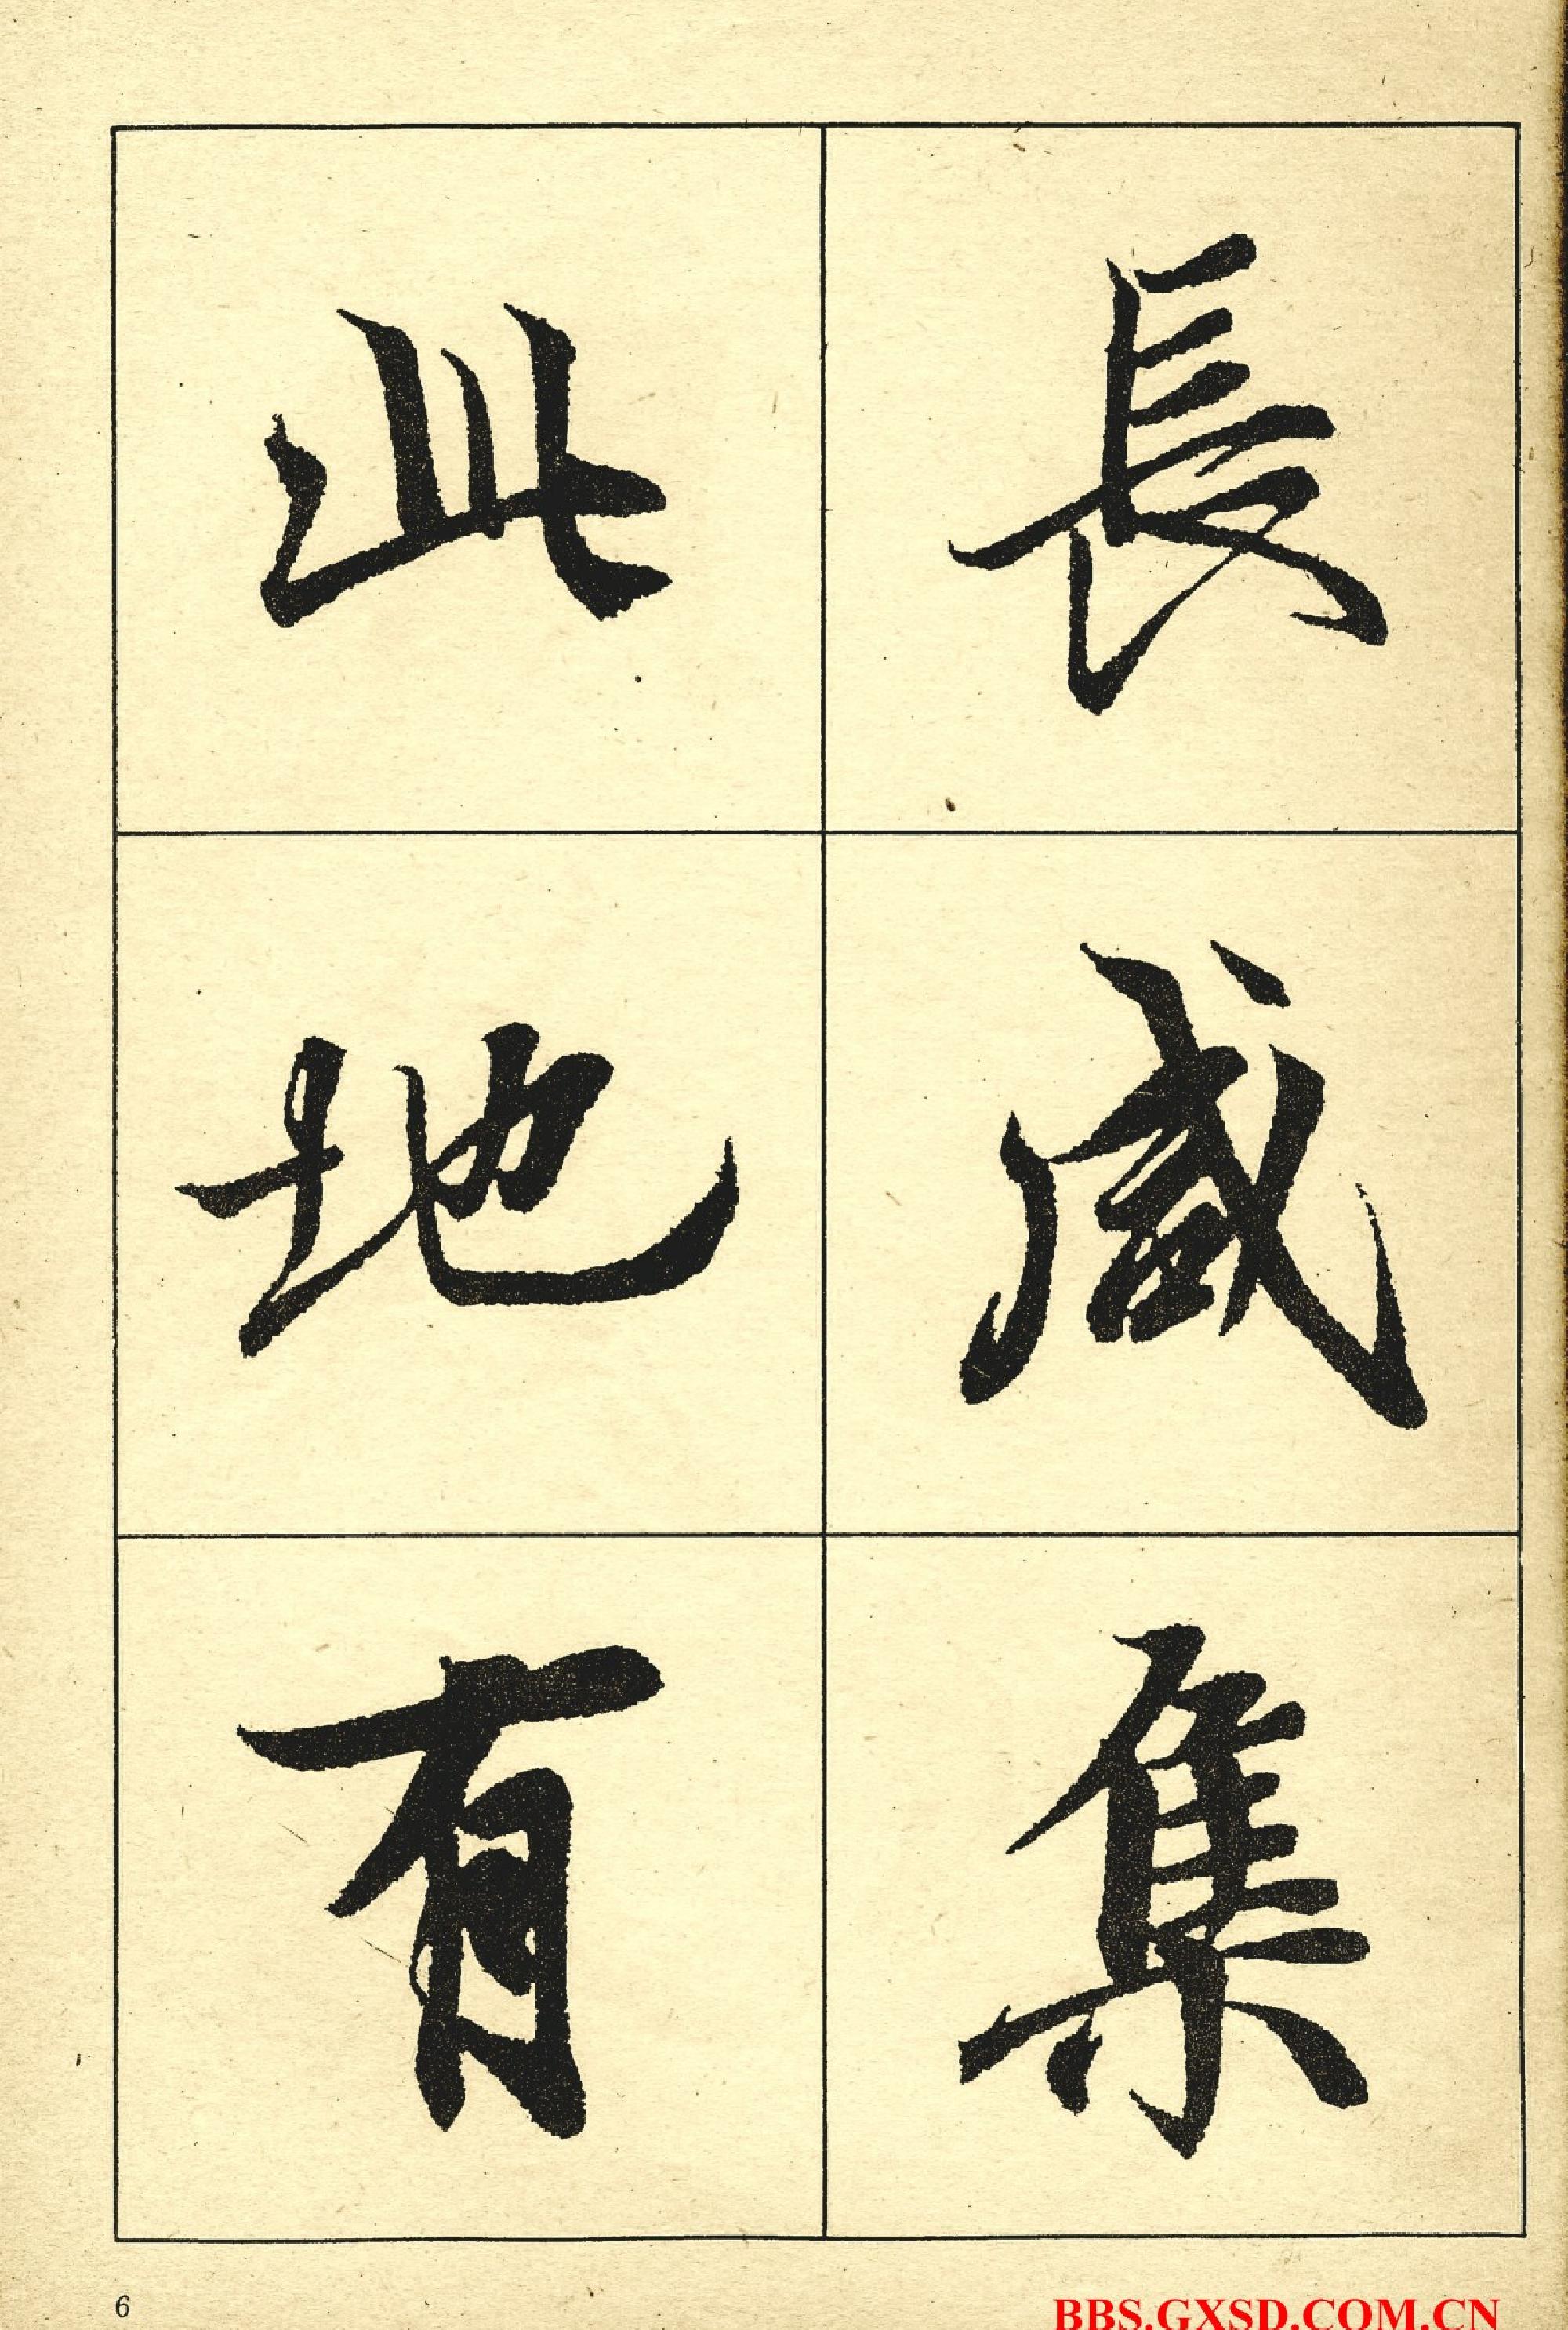 長咸集
此地有
6
BBS.GXSD.COM.CN